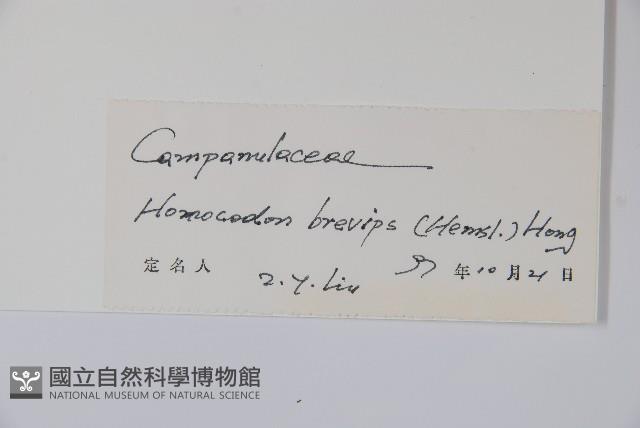 Campanulaceae
Homocodon brevips (Hemsl.) Hong
定名人 Z. Y. Liu 97 年 10 月 21 日
國立自然科學博物館
NATIONAL MUSEUM OF NATURAL SCIENCE